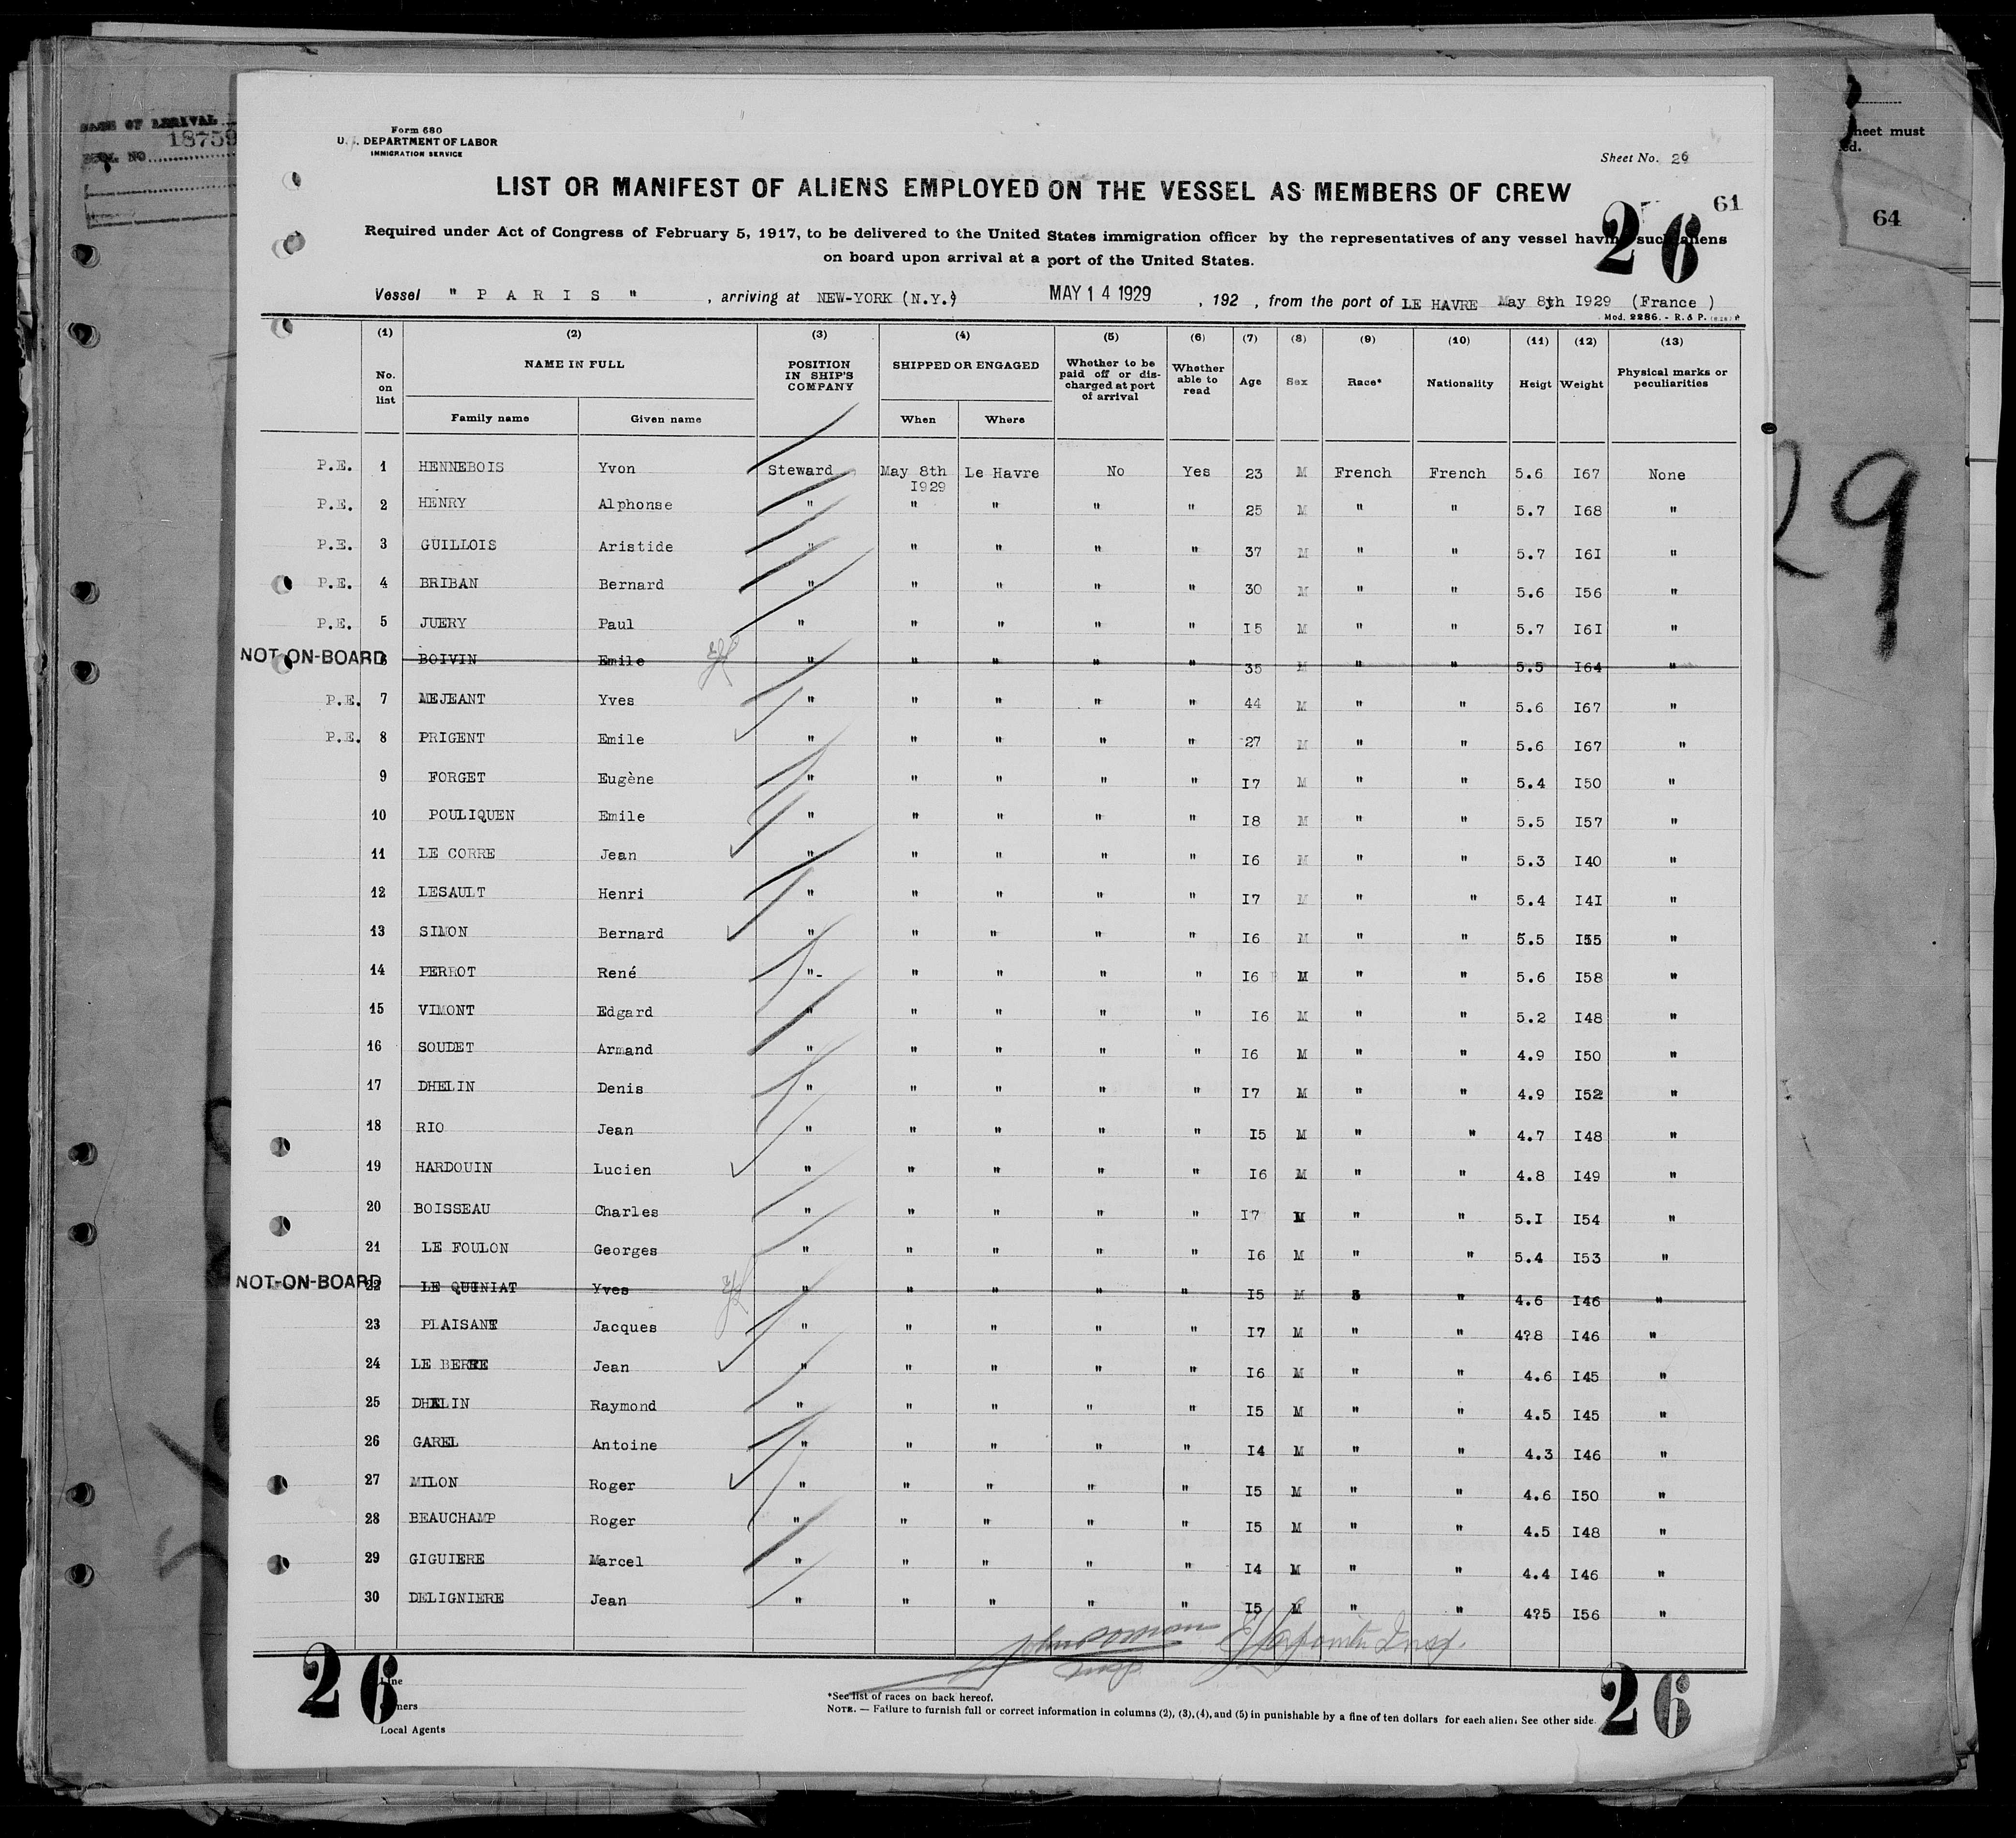 18759
heet must
64
Form 680
U.S. DEPARTMENT OF LABOR
IMMIGRATION SERVICE
Sheet No. 26
LIST OR MANIFEST OF ALIENS EMPLOYED ON THE VESSEL AS MEMBERS OF CREW
61
26
Required under Act of Congress of February 5, 1917, to be delivered to the United States immigration officer by the representatives of any vessel having such aliens
on board upon arrival at a port of the United States.
Vessel " P A R I S " , arriving at NEW-YORK (N.Y.) MAY 14 1929 , 192 , from the port of LE HAVRE May 8th I929 (France )
Mod. 2286. - R. & P.
(1) (2) (3) (4) (5) (6) (7) (8) (9) (10) (11) (12) (13)
No. on list NAME IN FULL POSITION IN SHIP'S COMPANY SHIPPED OR ENGAGED Whether to be paid off or discharged at port of arrival Whether able to read Age Sex Race* Nationality Heigt Weight Physical marks or peculiarities
Family name Given name When Where
P.E. 1 HENNEBOIS Yvon Steward May 8th I929 Le Havre No Yes 23 M French French 5.6 I67 None
P.E. 2 HENRY Alphonse " " " " " 25 M " " 5.7 I68 "
P.E. 3 GUILLOIS Aristide " " " " " 37 M " " 5.7 I6I "
P.E. 4 BRIBAN Bernard " " " " " 30 M " " 5.6 I56 "
P.E. 5 JUERY Paul " " " " " I5 M " " 5.7 I6I "
NOT ON-BOARD 6 BOIVIN Emile " " " " " 35 M " " 5.5 I64 "
P.E. 7 MEJEANT Yves " " " " " 44 M " " 5.6 I67 "
P.E. 8 PRIGENT Emile " " " " " 27 M " " 5.6 I67 "
9 FORGET Eugène " " " " " I7 M " " 5.4 I50 "
10 POULIQUEN Emile " " " " " I8 M " " 5.5 I57 "
11 LE CORRE Jean " " " " " I6 M " " 5.3 I40 "
12 LESAULT Henri " " " " " I7 M " " 5.4 I4I "
13 SIMON Bernard " " " " " I6 M " " 5.5 I55 "
14 PERROT René "- " " " " I6 M " " 5.6 I58 "
15 VIMONT Edgard " " " " " I6 M " " 5.2 I48 "
16 SOUDET Armand " " " " " I6 M " " 4.9 I50 "
17 DHELIN Denis " " " " " I7 M " " 4.9 I52 "
18 RIO Jean " " " " " I5 M " " 4.7 I48 "
19 HARDOUIN Lucien " " " " " I6 M " " 4.8 I49 "
20 BOISSEAU Charles " " " " " I7 M " " 5.I I54 "
21 LE FOULON Georges " " " " " I6 M " " 5.4 I53 "
NOT-ON-BOARD 22 LE QUINIAT Yves " " " " " I5 M " 4.6 I46 "
23 PLAISANT Jacques " " " " " I7 M " " 4?8 I46 "
24 LE Jean " " " " " I6 M " " 4.6 I45 "
25 DHELIN Raymond " " " " " I5 M " " 4.5 I45 "
26 GAREL Antoine " " " " " I4 M " " 4.3 I46 "
27 MILON Roger " " " " " I5 M " " 4.6 I50 "
28 BEAUCHAMP Roger " " " " " I5 M " " 4.5 I48 "
29 GIGUIERE Marcel " " " " " I4 M " " 4.4 I46 "
30 DELIGNIERE Jean " " " " " I5 M " " 4?5 I56 "
26
Line
Local Agents
*See list of races on back hereof.
NOTE. — Failure to furnish full or correct information in columns (2), (3), (4), and (5) in punishable by a fine of ten dollars for each alien. See other side.
26